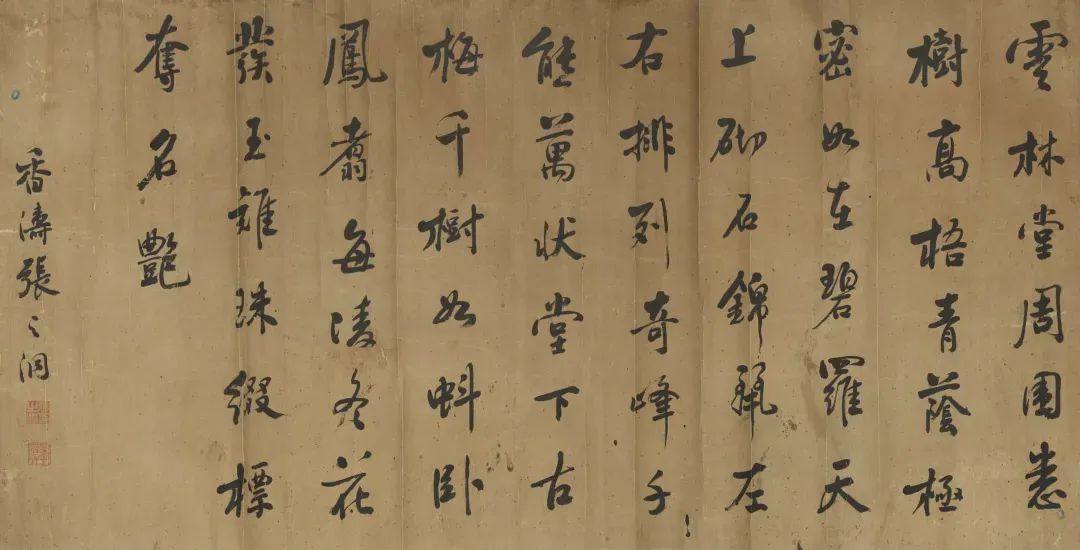 雲林堂周圍悉
樹高梧青蔭極
密如在碧羅天
上砌石錦左
右排列奇峰千
能萬狀堂下古
梅千樹如蚪卧
鳳翥每凌冬花
發玉珠綴標
奪名艷
香濤張之洞